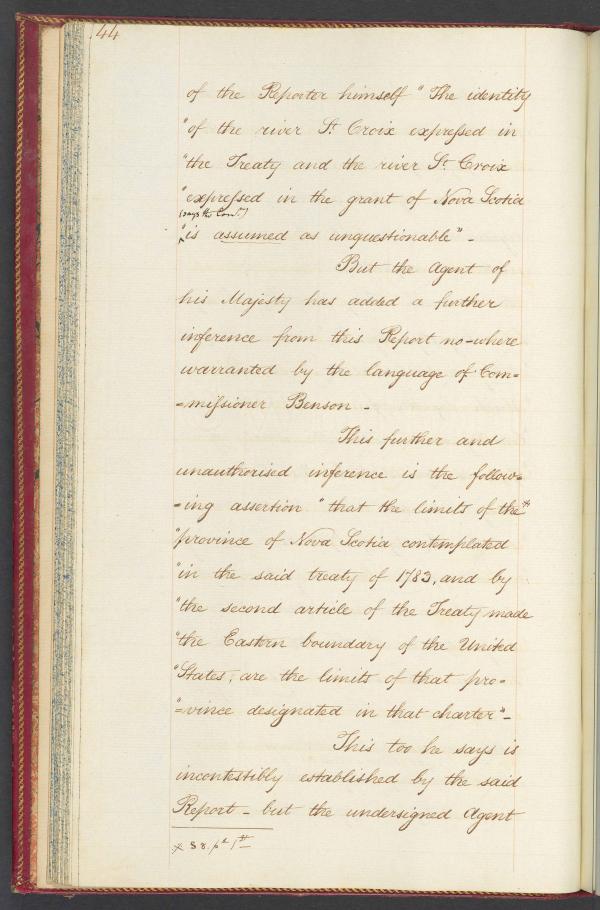 44
of the Reporter himself "The identity
"of the river St. Croix expressed in
"the Treaty and the river St. Croix
"expressed in the grant of Nova Scotia
(says the Comr.)
"is assumed as unquestionable" -
But the Agent of
his Majesty has added a further
inference from this Report no-where
warranted by the language of Com=
=missioner Benson -
This further and
unauthorised inference is the follow=
=ing assertion "that the limits of the *
"province of Nova Scotia contemplated
"in the said treaty of 1783, and by
"the second article of the Treaty made
"the Eastern boundary of the United
"States, are the limits of that pro=
"=vince designated in that charter" -
This too he says is
incontestibly established by the said
Report - but the undersigned Agent